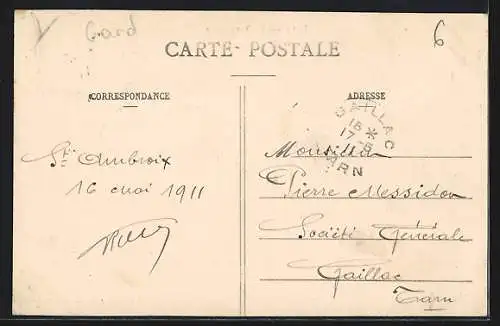 Gard
6
CARTE POSTALE
CORRESPONDANCE
ADRESSE
GAILLAC
16 *
17-5
TARN
St Ambroix
16 mai 1911
Monsieur
Pierre Messidon
Société Générale
Gaillac
Tarn